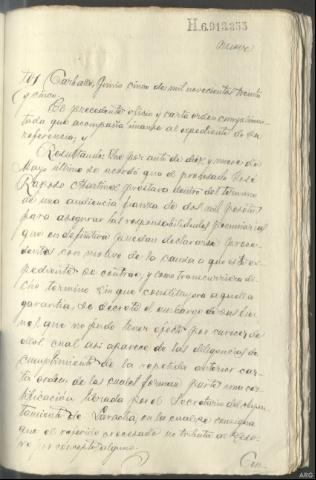 H.6.913.353
Carballo, Junio cinco de mil novecientos treinta
y cinco.
El precedente oficio y carta orden cumplimen-
tada que acompaña únanse al expediente de su
referencia; y
Resultando: Que por auto de diez y nueve de
Mayo último se acordó que el procesado José
Raposo Martínez prestara dentro del término
de una audiencia fianza de dos mil pesetas
para asegurar las responsabilidades pecuniarias
que en definitiva puedan declararse proce-
dentes con motivo de la causa a que este ex-
pediente se contrae, y como transcurriera di-
cho término sin que constituyera aquella
garantía, se decretó el embargo de sus bie-
nes, que no pudo tener efecto por carecer de
ellos, cual así aparece de las diligencias de
cumplimiento de la repetida anterior car-
ta orden, de las cuales forma parte una cer-
tificación librada por el Secretario del Ayun-
tamiento de Laracha, en la cual se consigna
que el referido procesado no tributa al Teso-
ro por concepto alguno.
Con-
ARG